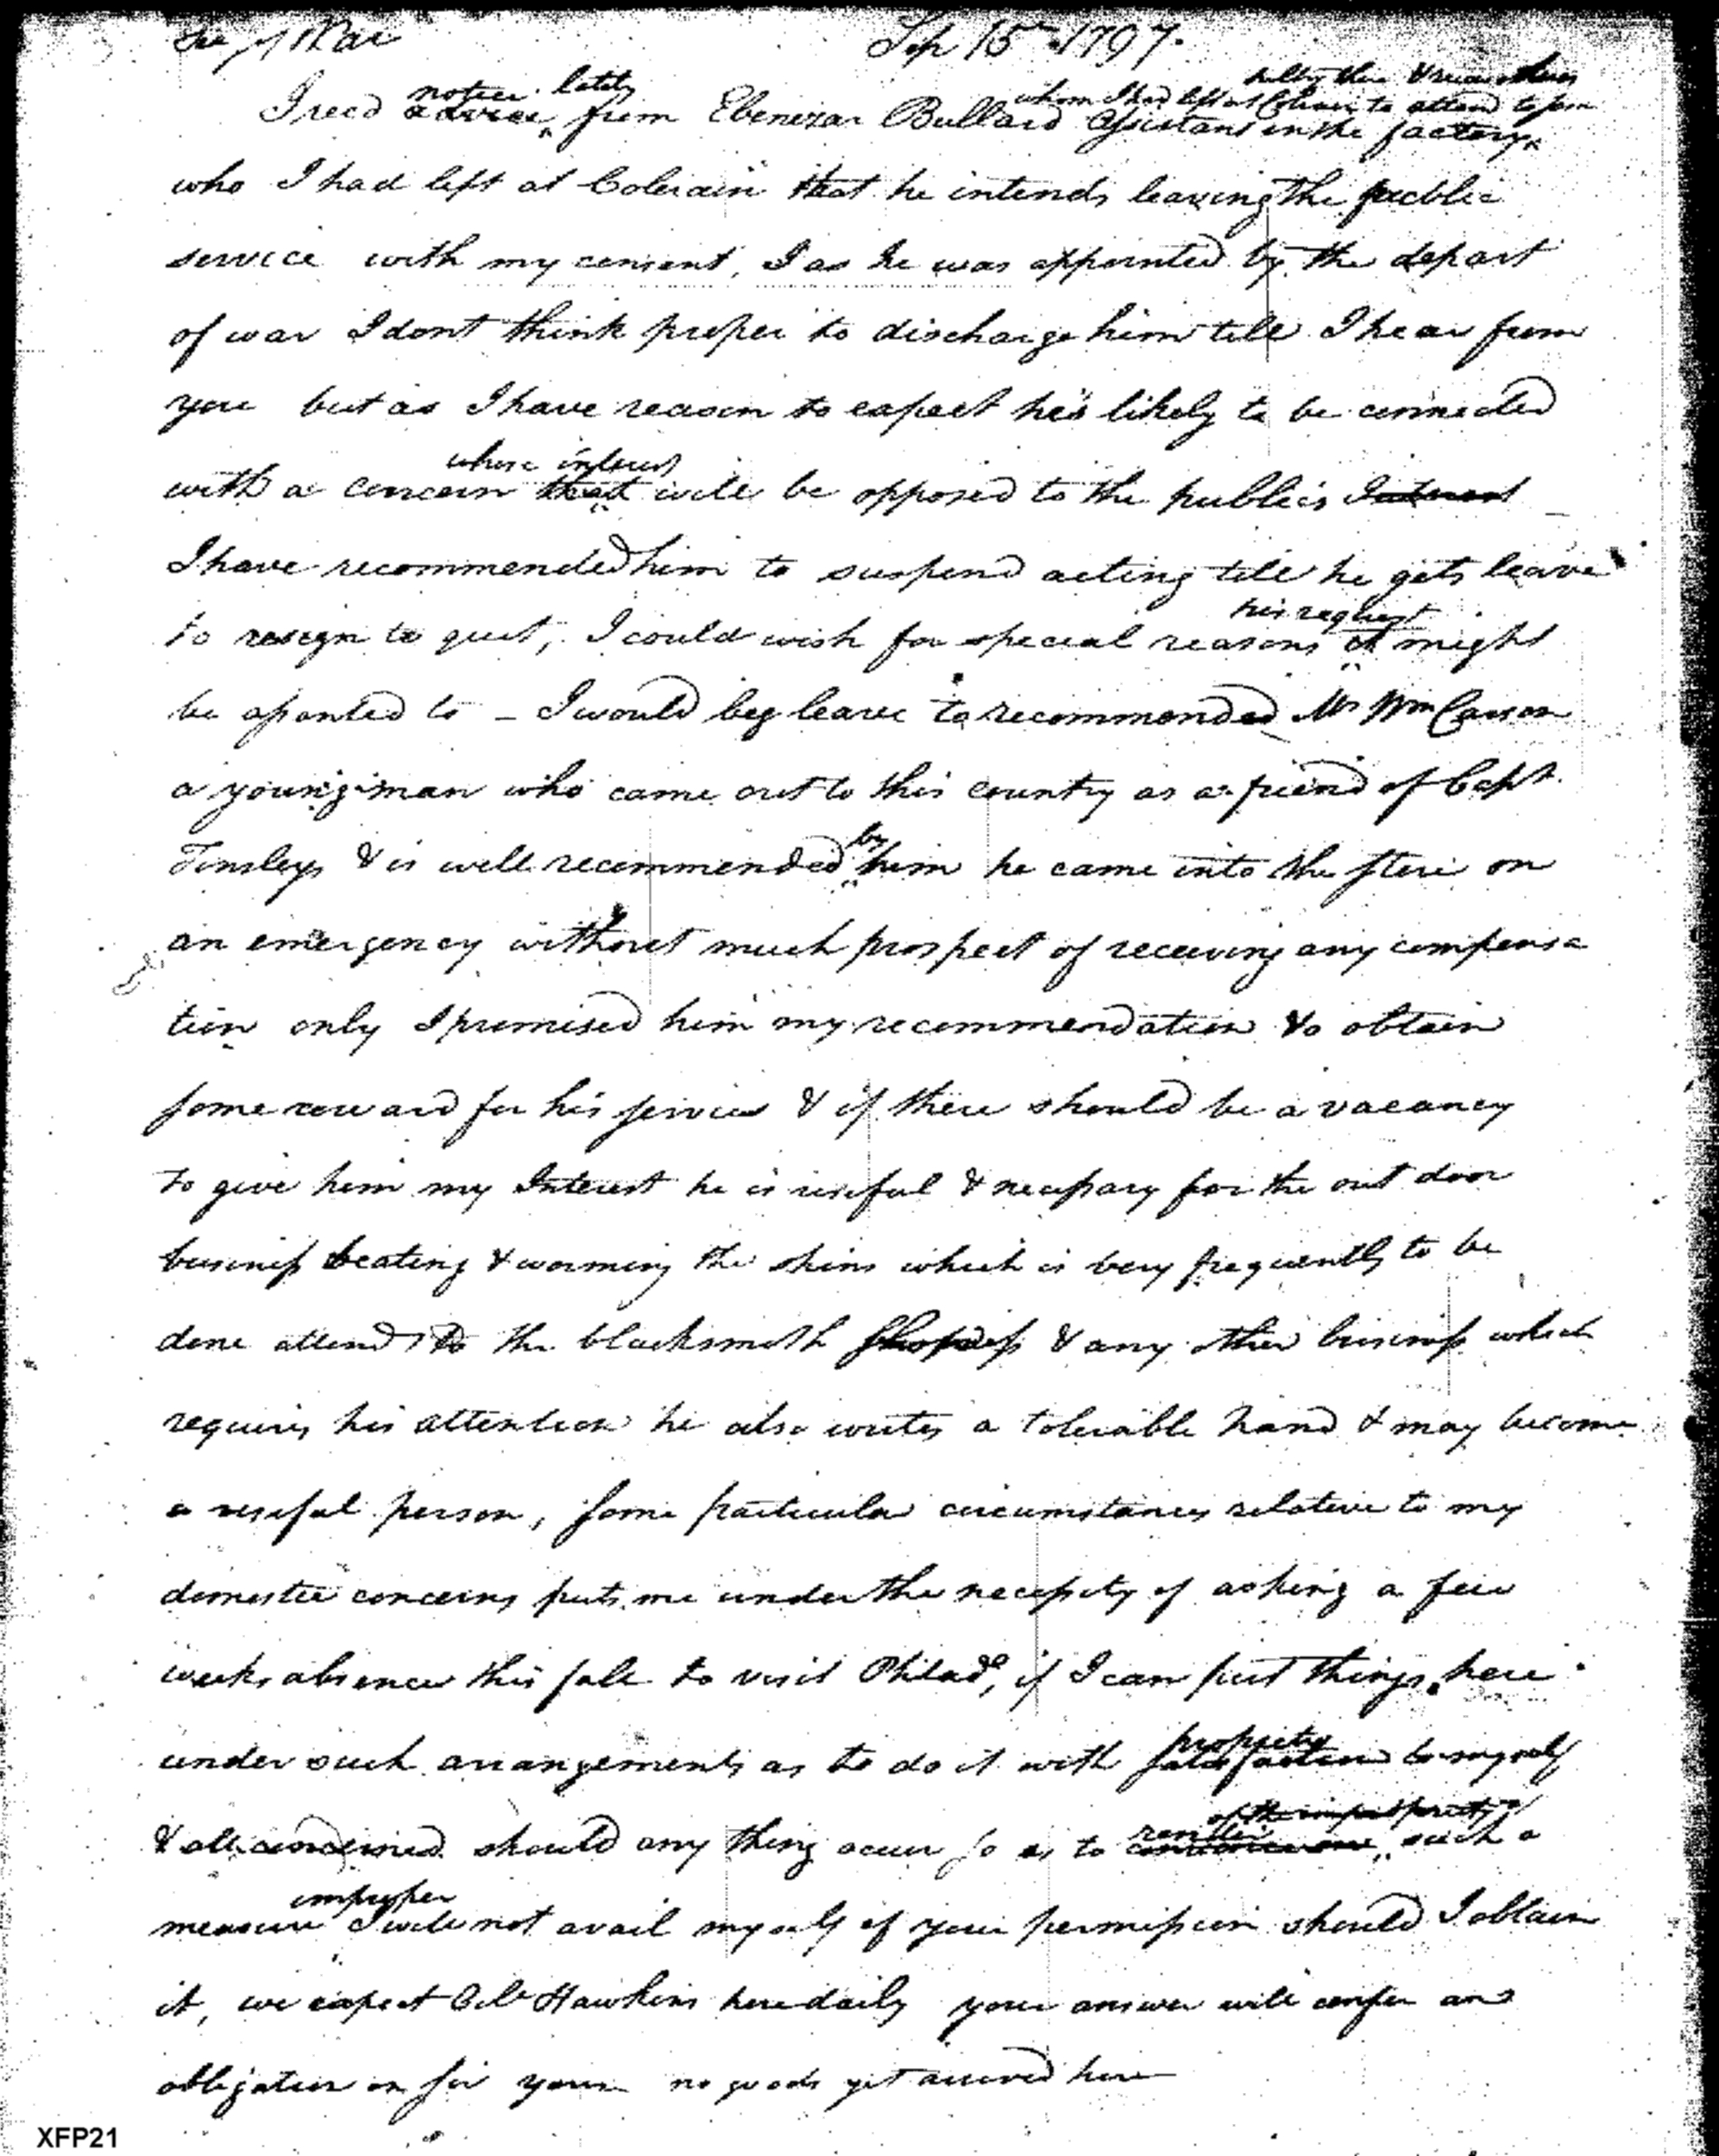 Sec of War Sep 15th 1797.
notice lately
whom I had left at Colerain to attend to
I recd advice from Ebenezar Bullard Assistant in the factory
who I had left at Colerain that he intends leaving the public
service with my consent, I as he was appointed by the depart
of war I dont think proper to discharge him till I hear from
you but as I have reason to expect he's likely to be connected
whose interest
with a concern that will be opposed to the publics Interest
I have recommended him to suspend acting till he gets leave
his request
to resign to quit, I could wish for special reasons it might
be asented to – I would beg leave to recommended Mr Wm Carson
a young man who came out to this country as a friend of Capt.
by
Tinsleys & is well recommended him he came into the store on
an emergency without much prospect of receiving any compensa
tion only I promised him my recommendation to obtain
some reward for his services & if there should be a vacancy
to give him my Interest he is useful & necessary for the out door
business beating & worming the skins which is very frequently to be
done attend to the blacksmith shops & any other business which
requires his attention he also writes a tolerable hand & may become
a useful person, some particular circumstances relative to my
domestic concerns puts me under the necessity of asking a few
weeks absence this fall to visit Philada, if I can put things here
propriety
under such arrangements as to do it with satisfaction to myself
of the impropriety of
render
& all concerned should any thing occur so as to such a
improper
measure I will not avail myself of your permission should I obtain
it, we expect Col Hawkins here daily your answer will confer an
obligation on sir yours no goods yet arrived here
XFP21